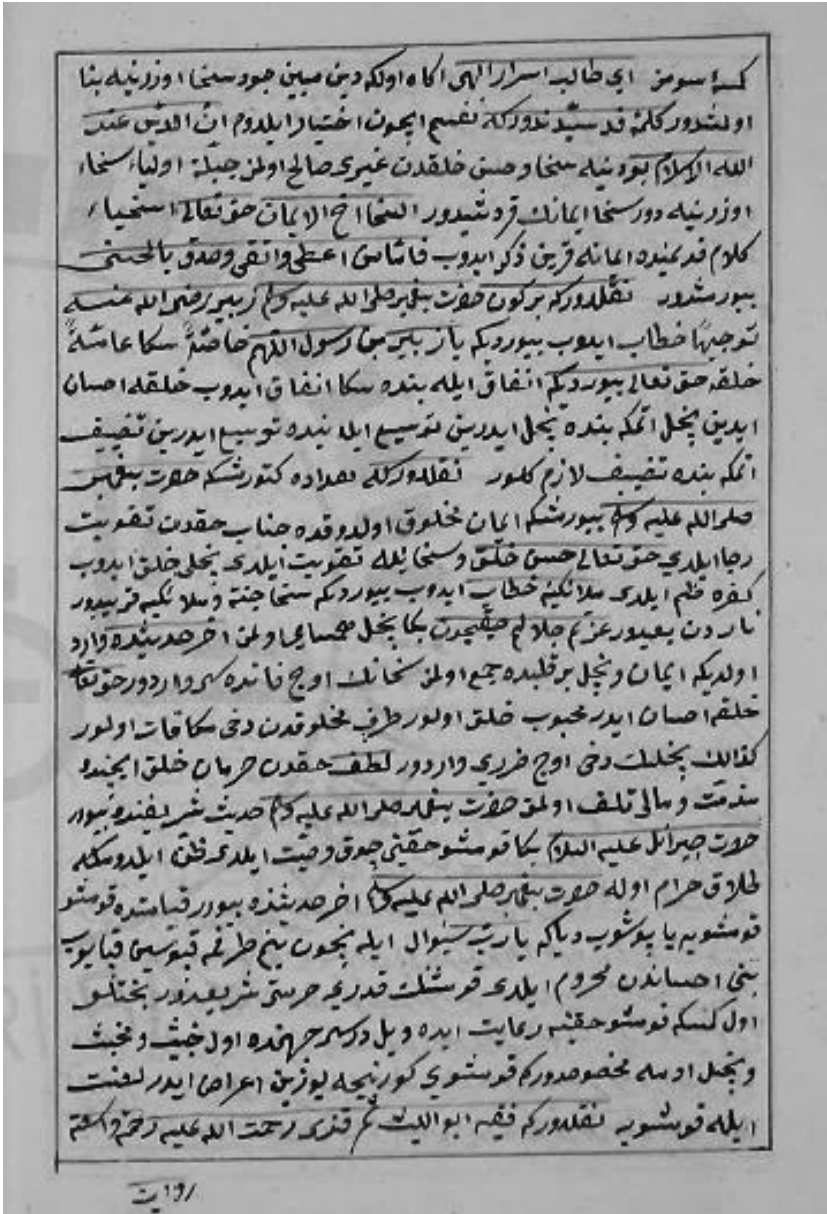 كسه سومز اى طالب اسرار الهى اكاه اولكه دين مبين جود سخا اوزرينه بنا
اولنشدور كلمهٔ قدسيّه ندور كه نفسم ايچون اختيار ايلدوم انّ الدّين عند
الله الاسلام بو دينيله سخا و حسن خلقدن غيرى صالح اولمز جبلّهٔ اولياء سخاء
اوزرينه دور سخا ايمانك قرندشيدور السّخا اخ الايمان حق تعالى اسخياء
كلام قديمنده ايمانه قرين ذكر ايدوب فامّا من اعطى واتقى وصدق بالحسنى
بيورمشدور نقلدور كه بر كون حضرت پيغمبر صلى الله عليه وسلم زبير رضى الله عنه
توجيهًا خطاب ايدوب بيورديكه يا زبير بن رسول اللهم خاصّةً سكا عامّةً
خلقه حق تعالى بيورديكه انفاق ايله بنده سكا انفاق ايدوب خلقه احسان
ايدين بخل اتمكه بنده بخل ايدرين توسيع ايلا بنده توسيع ايدرين تضييق
اتمكه بنده تضييق لازم كلور نقلدور كه بو اراده كتورمشكه حضرت پيغمبر
صلى الله عليه وسلم بيورمشكه ايمان مخلوق اولدوقده جناب حقدن تقويت
رجا ايلدى حق تعالى حسن خلق و سخا يله تقويت ايلدى بخلى خلق ايدوب
كفره ضم ايلدى ملائكيه خطاب ايدوب بيورديكه سخا جنته و ملائكيه قريبدور
ناردن بعيدور عزّتم جلالم حقيچون بكا بخل همسايه اولمز اخر حديثده وارد
اولديكه ايمان و بخل بر قلبده جمع اولمز سخانك اوج فائده سى واردور حق تعالى
خلقه احسان ايدر محبوب خلق اولور طرف مخلوقدن دخى مكافات اولور
كذالك بخلك دخى اوج ضررى واردور لطف حقدن حرمان خلق ايچنده
مذمّت و مالى تلف اولمق حضرت پيغمبر صلى الله عليه وسلم حديث شريفنده بيورر
حضرت جبرائل عليه السلام بكا قومشو حقينى چوق وصيّت ايلدى ظنّ ايلدومكه
طلاق حرام اوله حضرت پيغمبر صلى الله عليه وسلم اخر حديثنده بيورر قيامتده قومشو
قومشويه ياپوشوب دياكه يا ربّ سؤال ايله نيچون بنم طرفمه قپوسين قپايوب
بنى احساندن محروم ايلدى قومشنك قدرى حرمتى شريفدور بختلو
اول كسكه قومشو حقينه رعايت ايده ويل دركه سى جهنمده اول خبيث و مخبث
و بخيل اوسه مخصوصدور كه قومشوى كورنيجه يوزين اعراض ايدر لعنت
ايله قومشويه نقلدور كه فقيه ابو الليث سمرقندى رحمت الله عليه رحمة واسعة
روايت